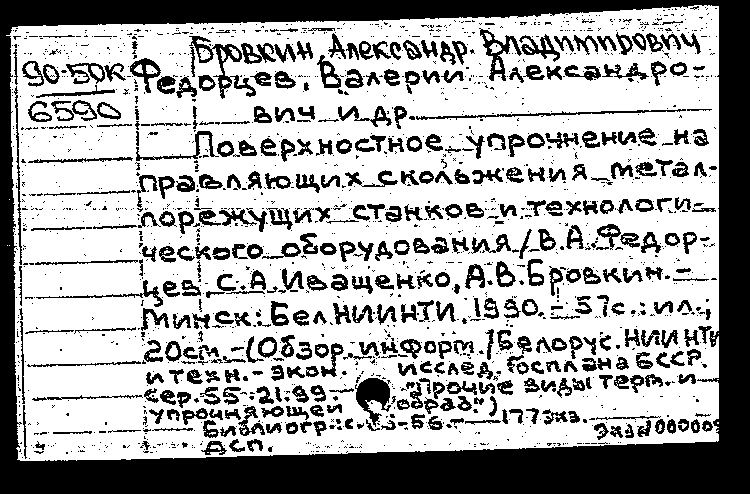 Бровкин, Александр Владимирович
90-50К Федорцев, Валерий Александро-
6590 вич и др.
Поверхностное упрочнение на
правляющих скольжения метал-
лорежущих станков и технологи-
ческого оборудования / В.А. Федор-
цев, С.А. Иващенко, А.В. Бровкин. -
Минск: БелНИИНТИ, 1990. - 57с.: ил.;
20см. - (Обзор. информ. / Белорус. НИИ НТИ
и техн. - экон. исслед. Госплана БССР.
Сер. 55. 21. 99. "Прочие виды терм. и
упрочняющей обраб.")
Библиогр.: с. -56. - 177экз.
ДСП.